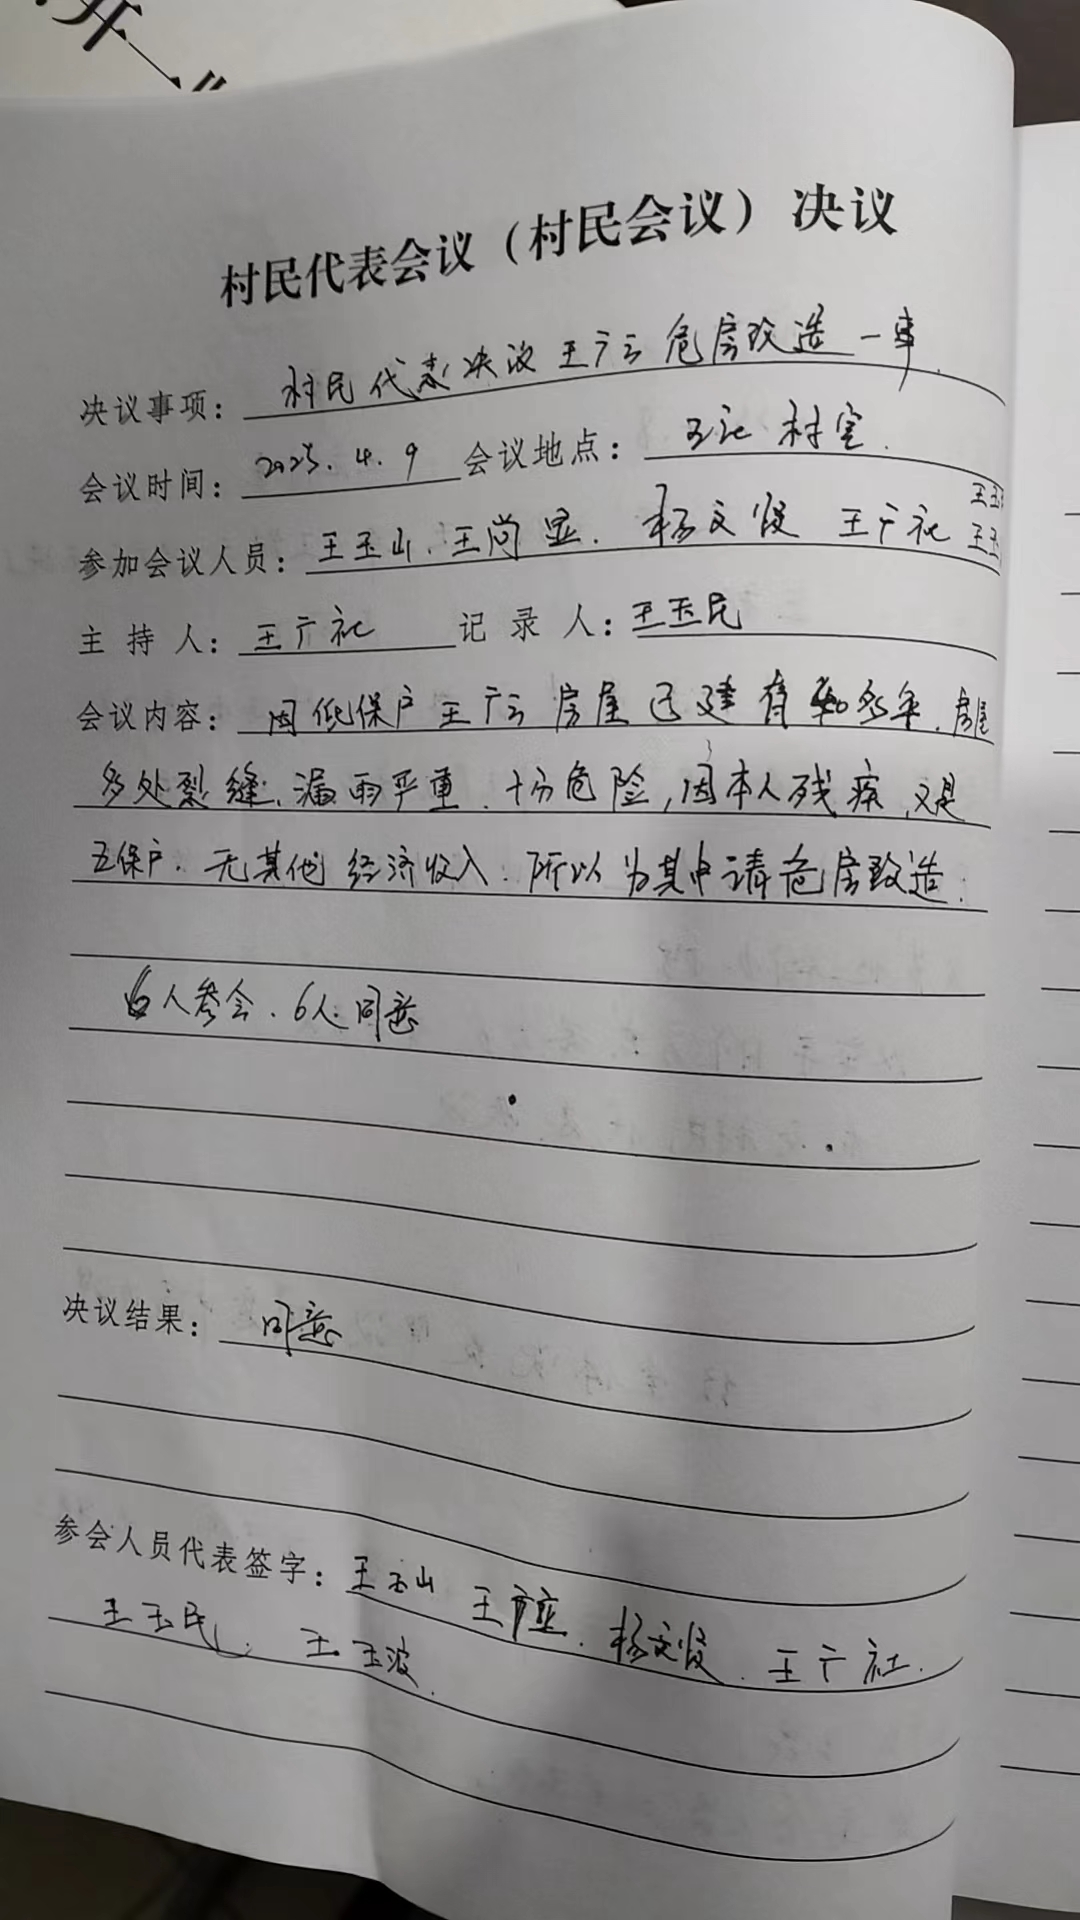 村民代表会议（村民会议）决议
决议事项：村民代表决议王广云危房改造一事.
会议时间：2025.4.9 会议地点：王记村室.
参加会议人员：王玉山、王尚显. 杨文俊 王广社
主持人：王广社 记录人：王玉民
会议内容：因低保户王广云房屋已建有多年.房屋
多处裂缝、漏雨严重.十分危险,因本人残疾,又是
五保户.无其他经济收入.所以为其申请危房改造.
6人参会.6人同意
决议结果：同意
参会人员代表签字：王玉山 王 杨文俊.王广社.
王玉民.王玉波.